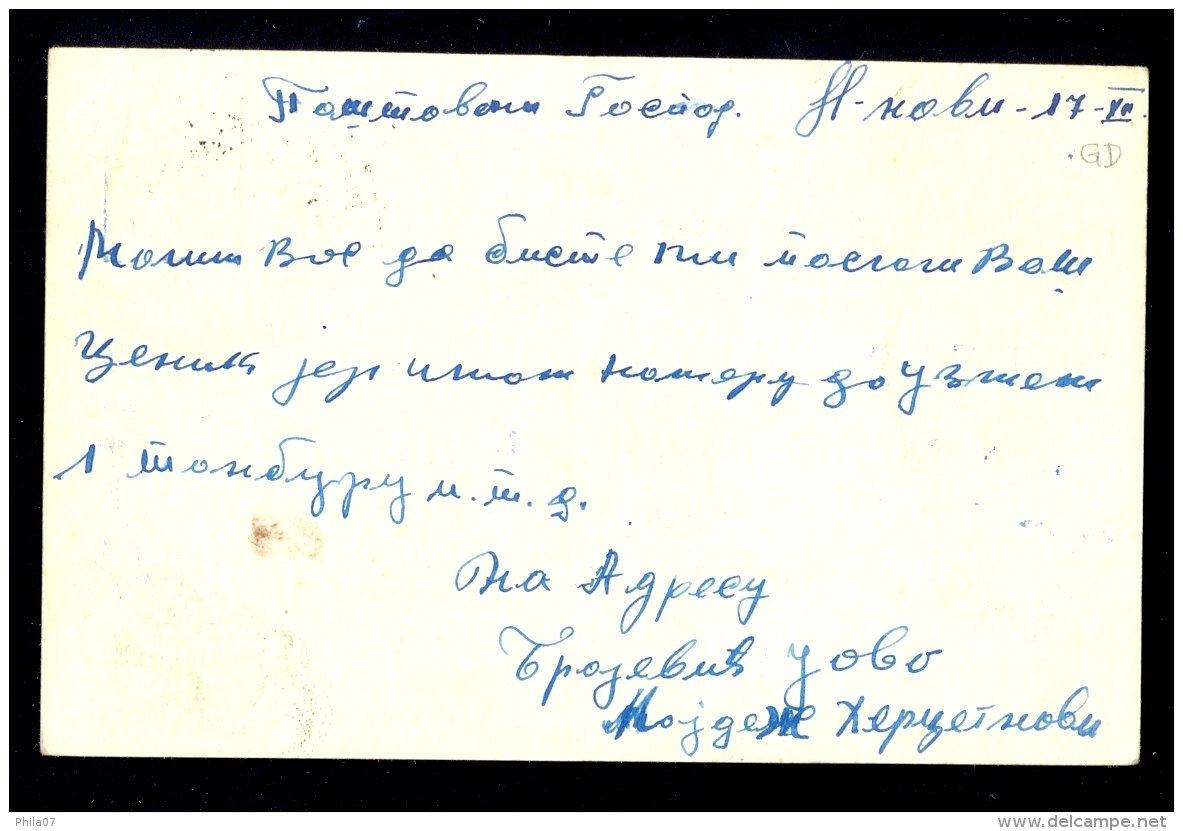 Поштовани Господ. Н-нови-17-XII.
GD
Молим Вас да бисте ми послали Ваш
ценик јер имам намеру да узмем
1 танбуру и.т.д.
На Адресу
Бројевић Јово
Мојдеж Херцегнови
Phila07
delcampe.net